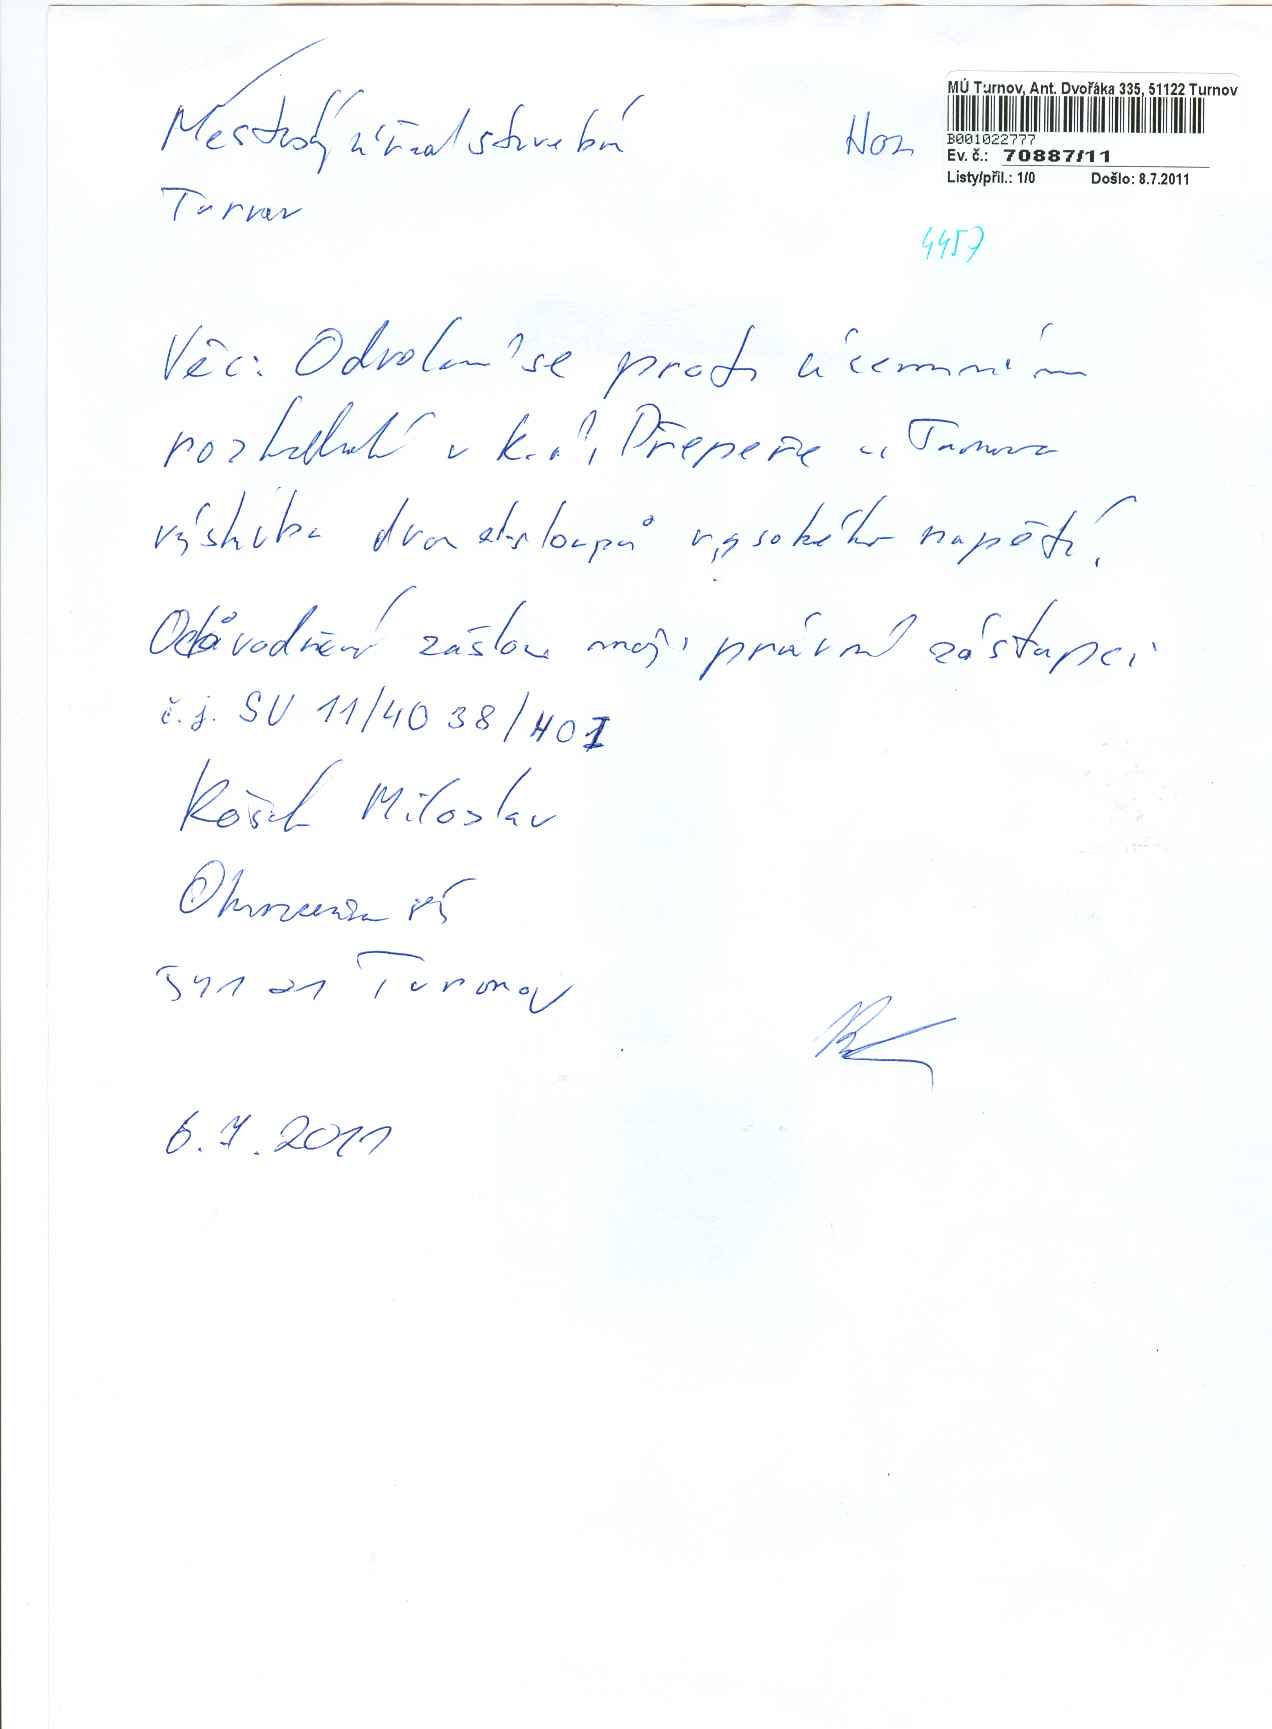 Městský úřad stavební
Turnov
Hoz
MÚ Turnov, Ant. Dvořáka 335, 51122 Turnov
B001022777
Ev. č.: 70887/11
Listy/příl.: 1/0 Došlo: 8.7.2011
4457
Věc: Odvolání se proti územním
rozhodnutí v k.ú. Přepeře u Turnova
výstavba dvou sloupů vysokého napětí.
Odůvodnění zašlou moji právní zástupci
č.j. SU 11/4038/HOZ
Miloslav
511 01 Turnov
6.7.2011